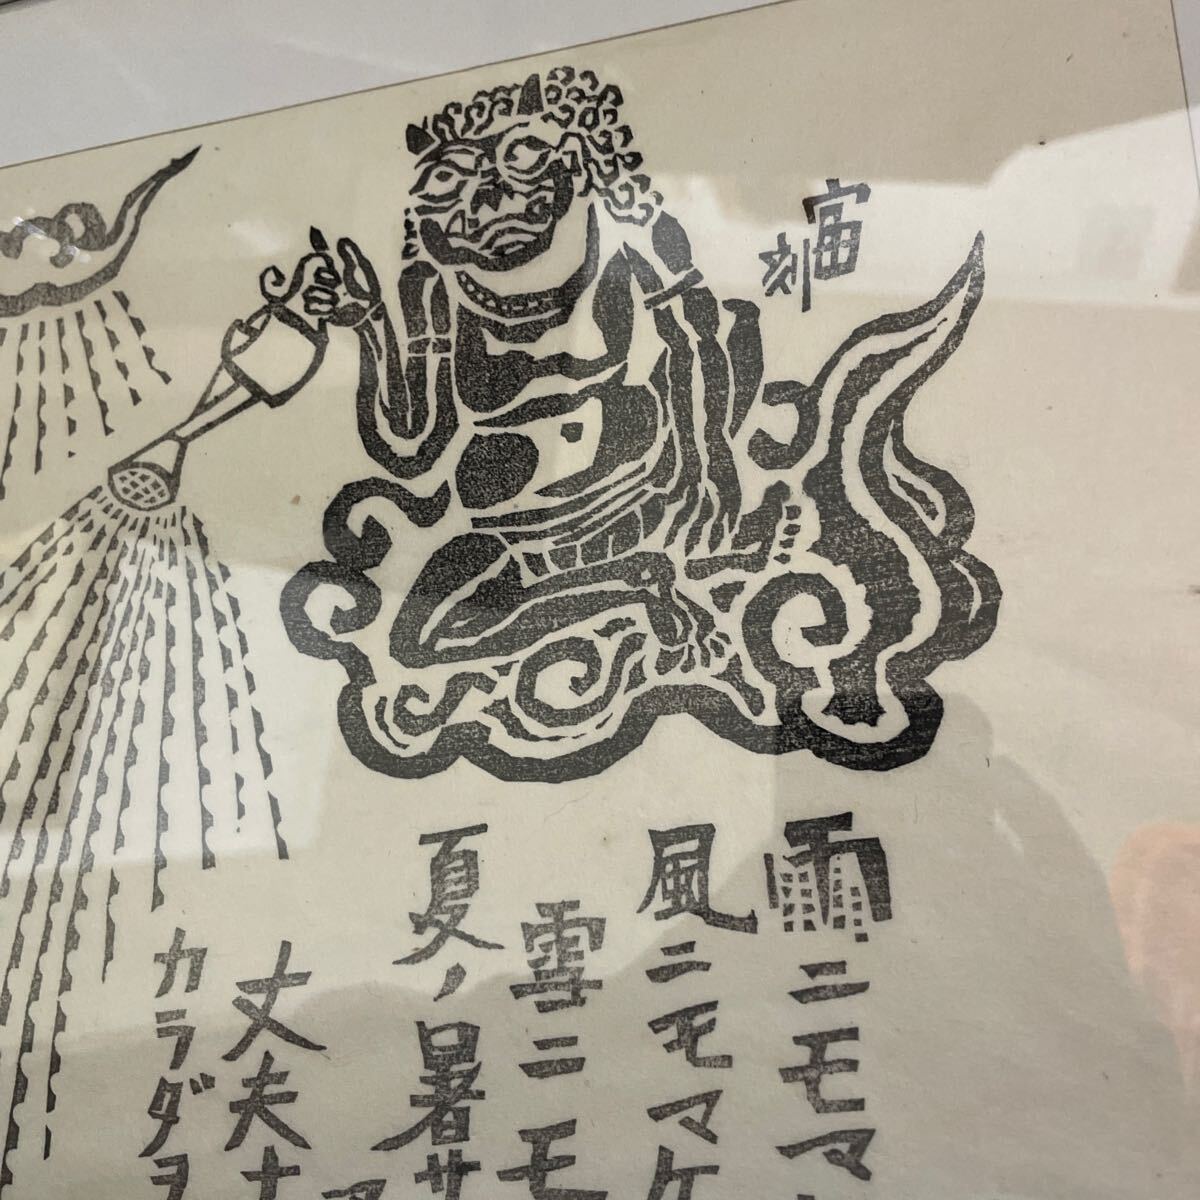 刻
雨ニモマ
風ニモマケ
雪ニモ
夏ノ暑サ
丈夫ナ
カラダヲ